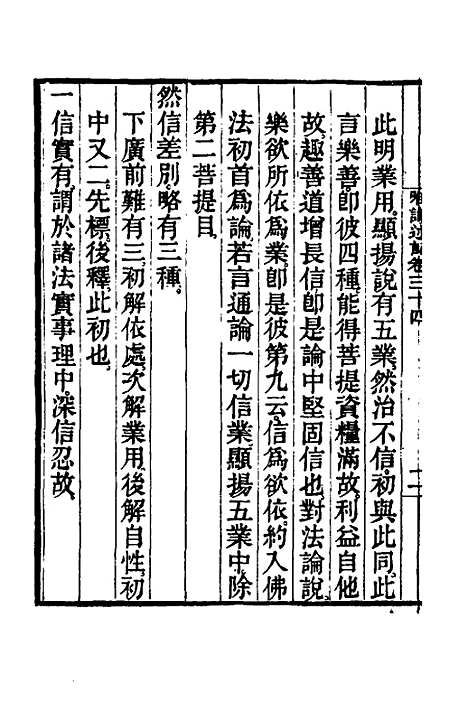 唯識述記卷三十四
此明業用。顯揚說有五業。然治不信。初與此同。此
言樂善。卽彼四種。能得菩提資糧滿故。利益自他
故。趣善道增長信卽是論中堅固信也。對法論說。
樂欲所依為業。卽是彼第九云。信為欲依。約入佛
法初首為論。若言通論一切信業。顯揚五業中。除
第二菩提目。
然信差別。略有三種。
下廣前難有三。初解依處。次解業用。後解自性。初
中又二。先標。後釋。此初也。
一信實有。謂於諸法實事理中。深信忍故。